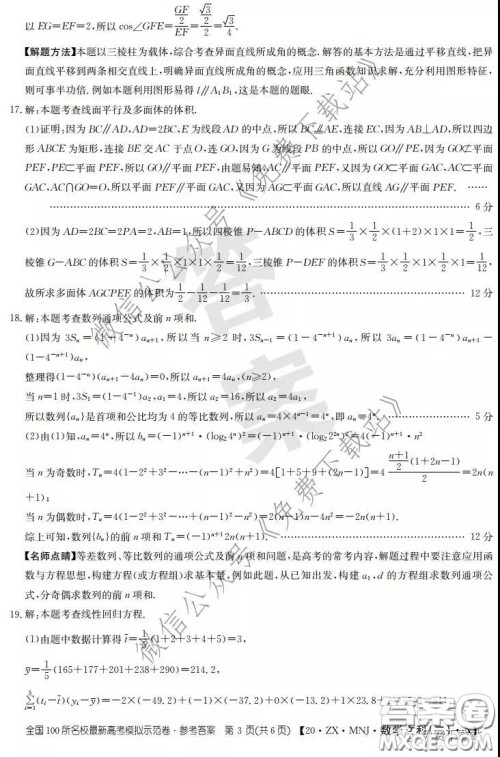 以 EG=EF=2,所以 cos∠GFE=(GF/2)/EF=(√3/2)/2=√3/4.
【解题方法】本题以三棱柱为载体,综合考查异面直线所成角的概念.解答的基本方法是通过平移直线,把异
面直线平移到两条相交直线上,明确异面直线所成角的概念,应用三角函数知识求解,充分利用图形特征,
则可事半功倍.例如本题利用图形易得 l∥A₁B₁,这是本题的题眼.
17.解:本题考查线面平行及多面体的体积.
(1)证明:因为 BC∥AD,AD=2BC,E 为线段 AD 的中点,所以 BC∥AE,连接 EC,因为 AB⊥AD,所以四边
形 ABCE 为矩形,连接 BE 交 AC 于点 O,连 GO,因为 G 为线段 PB 的中点,所以 GO∥PE,因为 GO⊄平面
PEF,PE⊂平面 PEF,所以 GO∥平面 PEF,由题易知,AC∥平面 PEF,又因为 GO⊂平面 GAC,AC⊂平面
GAC,AC∩GO=O,所以平面 PEF∥平面 GAC,又因为 AG⊂平面 GAC,所以直线 AG∥平面 PEF. ……
…… 6 分
(2)因为 AD=2BC=2PA=2,AB=1,所以四棱锥 P—ABCD 的体积 S=1/3×1/2×(1+2)×1=1/2,三
棱锥 G—ABC 的体积 S=1/3×1/2×1×1×1/2=1/12,三棱锥 P—DEF 的体积 S=1/3×1/2×1/2×1=1/12,
故所求多面体 AGCPEF 的体积为1/2-1/12-1/12=1/3. …… 12 分
18.解:本题考查数列通项公式及前 n 项和.
(1)因为 3Sₙ=(1-4⁻ⁿ)aₙ₊₁,所以当 n≥2 时,3Sₙ₋₁=(1-4⁻ⁿ⁺¹)aₙ,所以 3aₙ=(1-4⁻ⁿ)aₙ₊₁-
(1-4⁻ⁿ⁺¹)aₙ,
整理得(1-4⁻ⁿ)(aₙ₊₁-4aₙ)=0,所以 aₙ₊₁=4aₙ,(n≥2),
当 n=1 时,3S₁=(1-4⁻¹)a₂,所以 a₂=16,所以 a₂=4a₁,
所以数列{aₙ}是首项和公比均为 4 的等比数列,所以 aₙ=4×4ⁿ⁻¹=4ⁿ,即 aₙ=4ⁿ. …… 5 分
(2)由(1)知,aₙ=4ⁿ,所以 bₙ=(-1)ⁿ⁺¹·(log₂4ⁿ)²=(-1)ⁿ⁺¹·(log₂2²ⁿ)²=4(-1)ⁿ⁺¹·n²
当 n 为奇数时,Tₙ=4(1-2²+3²-…-(n-1)²+n²)=4[1+5+9+(2n-1)]=4·((n+1)/2)(1+2n-1)/2=2n(n
+1);
当 n 为偶数时,Tₙ=4(1-2²+3²-…+(n-1)²-n²)=2(n-1)n-4n²=-2n(n+1).
综上可知,数列{bₙ}的前 n 项和 Tₙ=(-1)ⁿ⁺¹2n(n+1). …… 12 分
【名师点睛】等差数列、等比数列的通项公式及前 n 项和问题,是高考的常考内容,解题过程中要注意应用函
数与方程思想,构建方程(或方程组)求基本量.例如此题,从已知出发,构建 a₁,d 的方程组求数列通项公
式,分奇偶求数列的和.
19.解:本题考查线性回归方程.
(1)由题中数据计算得 t̄=1/5(1+2+3+4+5)=3,
ȳ=1/5(165+177+201+238+290)=214.2,
∑(tᵢ-t̄)(yᵢ-ȳ)=-2×(-49.2)+(-1)×(-37.2)+0×(-13.2)+1×23.8+
全国 100 所名校最新高考模拟示范卷·参考答案 第 3 页(共 6 页) 【20·ZX·MNJ·数学文科
答案
微信公众号《免费下载站》
微信公众号《免费下载站》
答案圈
MXQE.COM